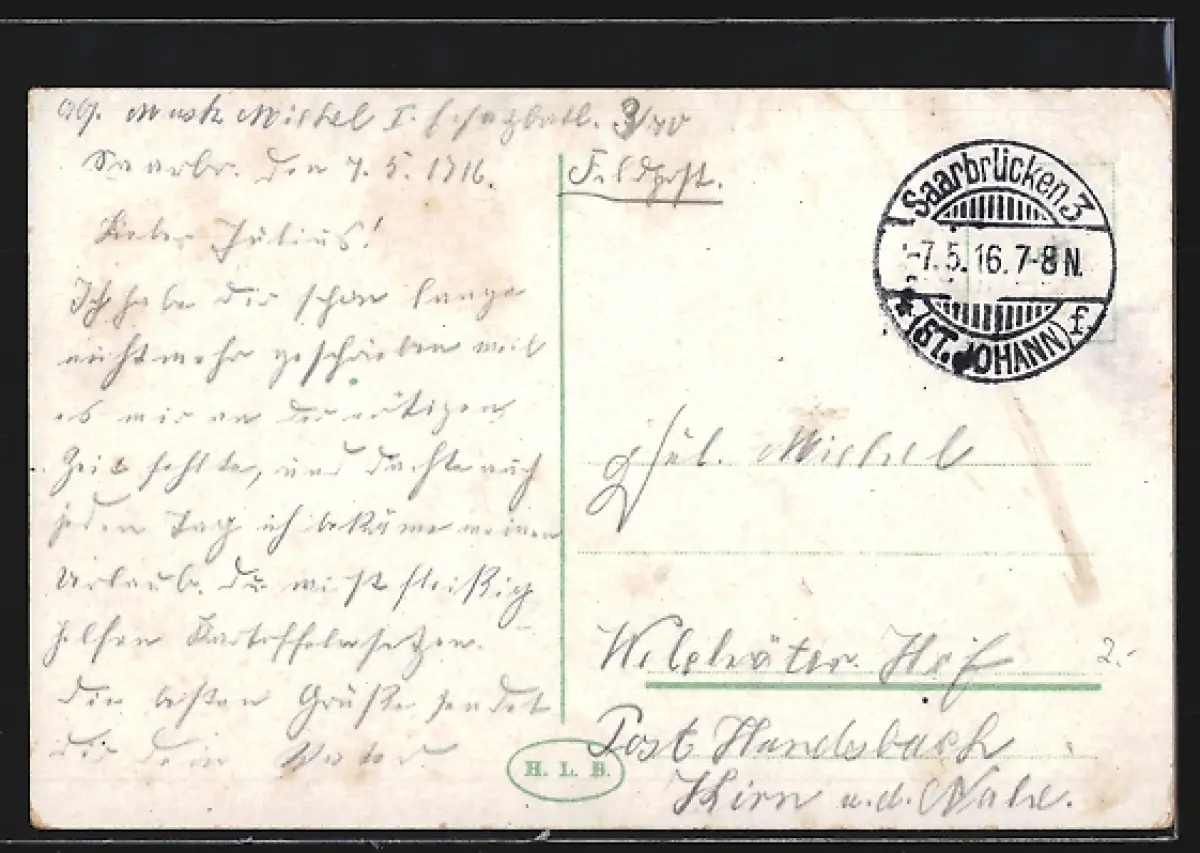 Abs. Musk. Michel I. Ersatzbatl. 3/70
Saarbr. den 7. 5. 1916.
Lieber Julius!
Ich habe dir schon lange
nicht mehr geschrieben weil
es mir an der nötigen
Zeit fehlte, und dachte auch
jeden Tag ich bekäme meinen
Urlaub. Du mußt fleißig
helfen Kartoffelnsetzen.
Die besten Grüße sendet
dir dein Vater
Feldpost.
Saarbrücken 3
-7.5.16.7-8 N.
* (ST. JOHANN) f
Jul. Michel
Hof
2.-
Post Handsbach
Kirn a.d. Nahe.
H. L. B.